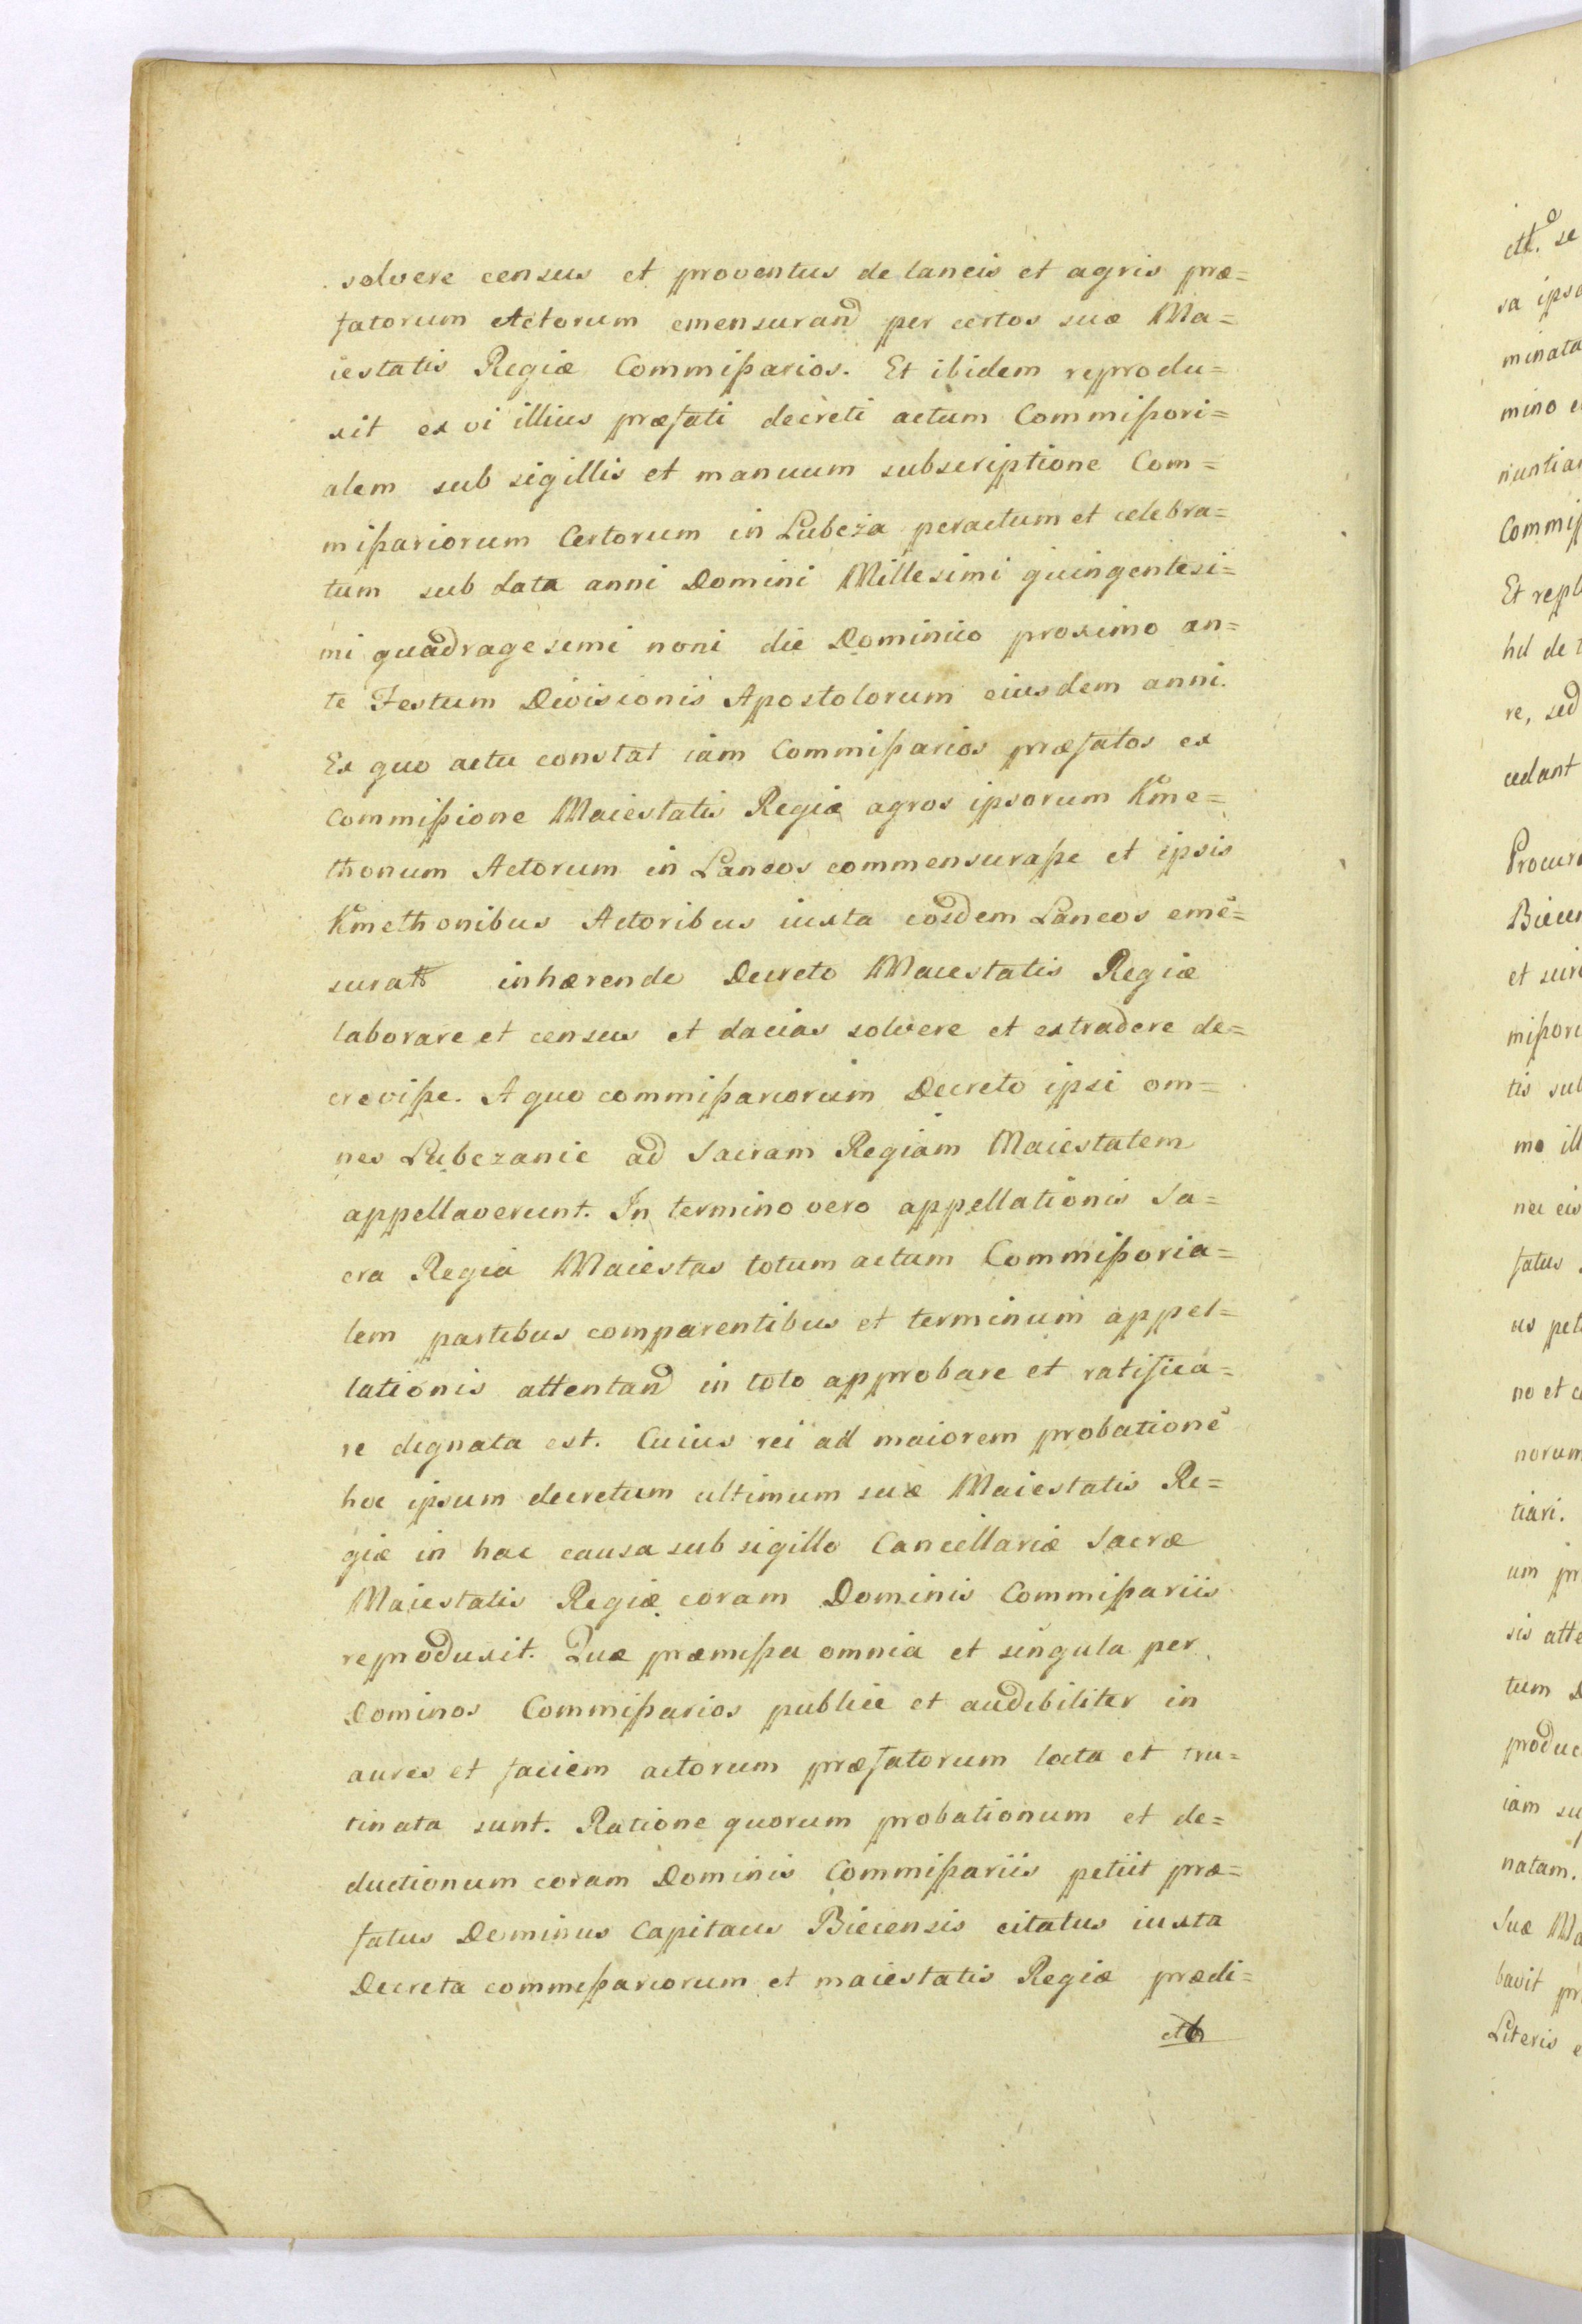 solvere census et proventus de laneis et agris præ=
fatorum Actorum emensurand per certos suæ Ma=
iestatis Regiæ Commißarios. Et ibidem reprodu=
xit ex vi illius præfati decreti actum Commißori=
alem sub sigillis et manuum subscriptione Com=
mißariorum Certorum in Lubcza peractum et celebra=
tum sub data anni Domini Millesimi quingentesi=
mi quadragesimi noni die Dominico proximo an=
te Festum Divisionis Apostolorum eiusdem anni.
Ex quo actu constat iam Commißarios præfatos ex
commißione Maiestatis Regiæ agros ipsorum Kme=
thonum Actorum in Laneos commensuraße et ipsis
Kmethonibus Actoribus iuxta eosdem Laneos emē=
surat inhærendo Decreto Maiestatis Regiæ
laborare et census et dacias solvere et extradere de=
creviße. A quo commißariorum Decreto ipsi om=
nes Lubczanie ad Sacram Regiam Maiestatem
appellaverunt. In termino vero appellationis Sa=
cra Regia Maiestas totum actum Commißoria=
lem partibus comparentibus et terminum appel=
lationis attentand in toto approbare et ratifica=
re dignata est. Cuius rei ad maiorem probationē
hoc ipsum decretum ultimum suæ Maiestatis Re=
giæ in hac causa sub sigillo Cancellariæ Sacræ
Maiestatis Regiæ coram Dominis Commißariis
reproduxit. Quæ præmißa omnia et singula per
Dominos Commißarios publice et audibiliter in
aures et faciem actorum præfatorum lecta et tru=
tinata sunt. Ratione quorum probationum et de=
ductionum coram Dominis Commißariis petiit præ=
fatus Dominus Capitaus Biecensis citatus iuxta
Decreta commißariorum et maiestatis Regiæ prædi=
se
sa ipso
minata
mino
nuntia
Commiß
Et repl
hil de
re, sed
cedant
Procur
Biecen
et
mißor
tis sub
mo ill
nec eis
fatus
us pet
no et
norum
tiari.
um pr
sis atte
tum
produc
iam su
natam.
Suæ Ma
bavit pr
Literis e